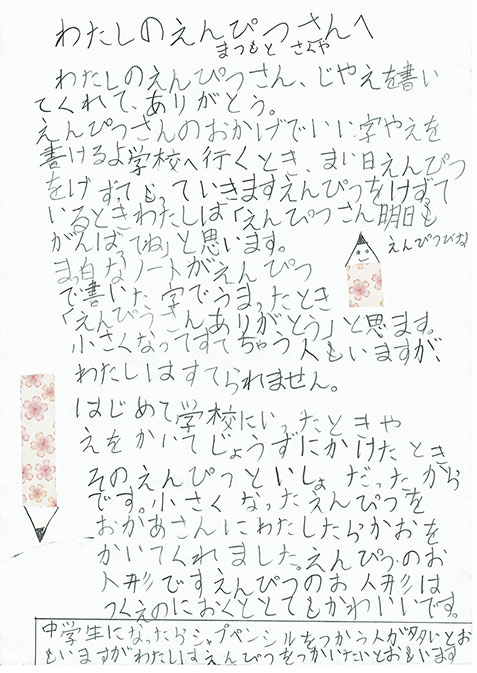 わたしのえんぴつさんへ
まつもと さくや
わたしのえんぴつさん、じやえを書い
てくれて、ありがとう。
えんぴつさんのおかげでいい字やえを
書けるよ学校へ行くとき、まい日えんぴつ
をけずてもっていきますえんぴつをけずて
いるときわたしは「えんぴつさん明日も
がんばってね」と思います。
えんぴつびな
まっ白なノートがえんぴつ
で書いた字でうまったとき
「えんぴつさんありがとう」と思ます。
小さくなってすてちゃう人もいますが、
わたしはすてられません。
はじめて学校にいったときや
えをかいてじょうずにかけたとき
そのえんぴつといしょだったから
です。小さくなったえんぴつを
おかあさんにわたしたらかおを
かいてくれました。えんぴつのお
人形ですえんぴつのお人形は
つくえのにおくととてもかわいいです。
中学生になったらシャプペンシルをつかう人が多いとお
もいますがわたしはえんぴつをつかいたいとおもいます